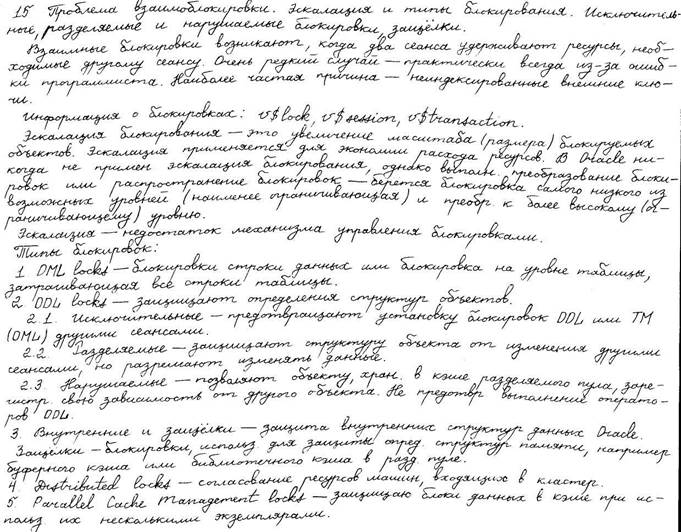 15 Проблема взаимоблокировки. Эскалация и типы блокирования. Исключитель-
ные, разделяемые и нарушаемые блокировки, защёлки.
Взаимные блокировки возникают, когда два сеанса удерживают ресурсы, необ-
ходимые другому сеансу. Очень редкий случай — практически всегда из-за ошиб-
ки программиста. Наиболее частая причина — неиндексированные внешние клю-
чи.
Информация о блокировках: v$lock, v$session, v$transaction.
Эскалация блокирования — это увеличение масштаба (размера) блокируемых
объектов. Эскалация применяется для экономии расхода ресурсов. В Oracle ни-
когда не примен эскалация блокирования, однако выполн. преобразование блоки-
ровок или распространение блокировок — берется блокировка самого низкого из
возможных уровней (наименее ограничивающая) и преобр. к более высокому (ог-
раничивающему) уровню.
Эскалация — недостаток механизма управления блокировками.
Типы блокировок:
1 DML locks — блокировки строки данных или блокировка на уровне таблицы,
затрагивающая все строки таблицы.
2 DDL locks — защищают определения структур объектов.
2.1. Исключительные — предотвращают установку блокировок DDL или TM
(DML) другими сеансами.
2.2. Разделяемые — защищают структуру объекта от изменения другими
сеансами, но разрешают изменять данные.
2.3. Нарушаемые — позволяют объекту, хран. в кэше разделяемого пула, заре-
гистр. свою зависимость от другого объекта. Не предотвр выполнение операто-
ров DDL.
3. Внутренние и защёлки — защита внутренних структур данных Oracle.
Защёлки — блокировки, использ для защиты опред. структур памяти, например
буферного кэша или библиотечного кэша в разд пуле.
4. Distributed locks — согласование ресурсов машин, входящих в кластер.
5. Parallel Cache Management locks — защищаю блоки данных в кэше при ис-
польз их несколькими экземплярами.